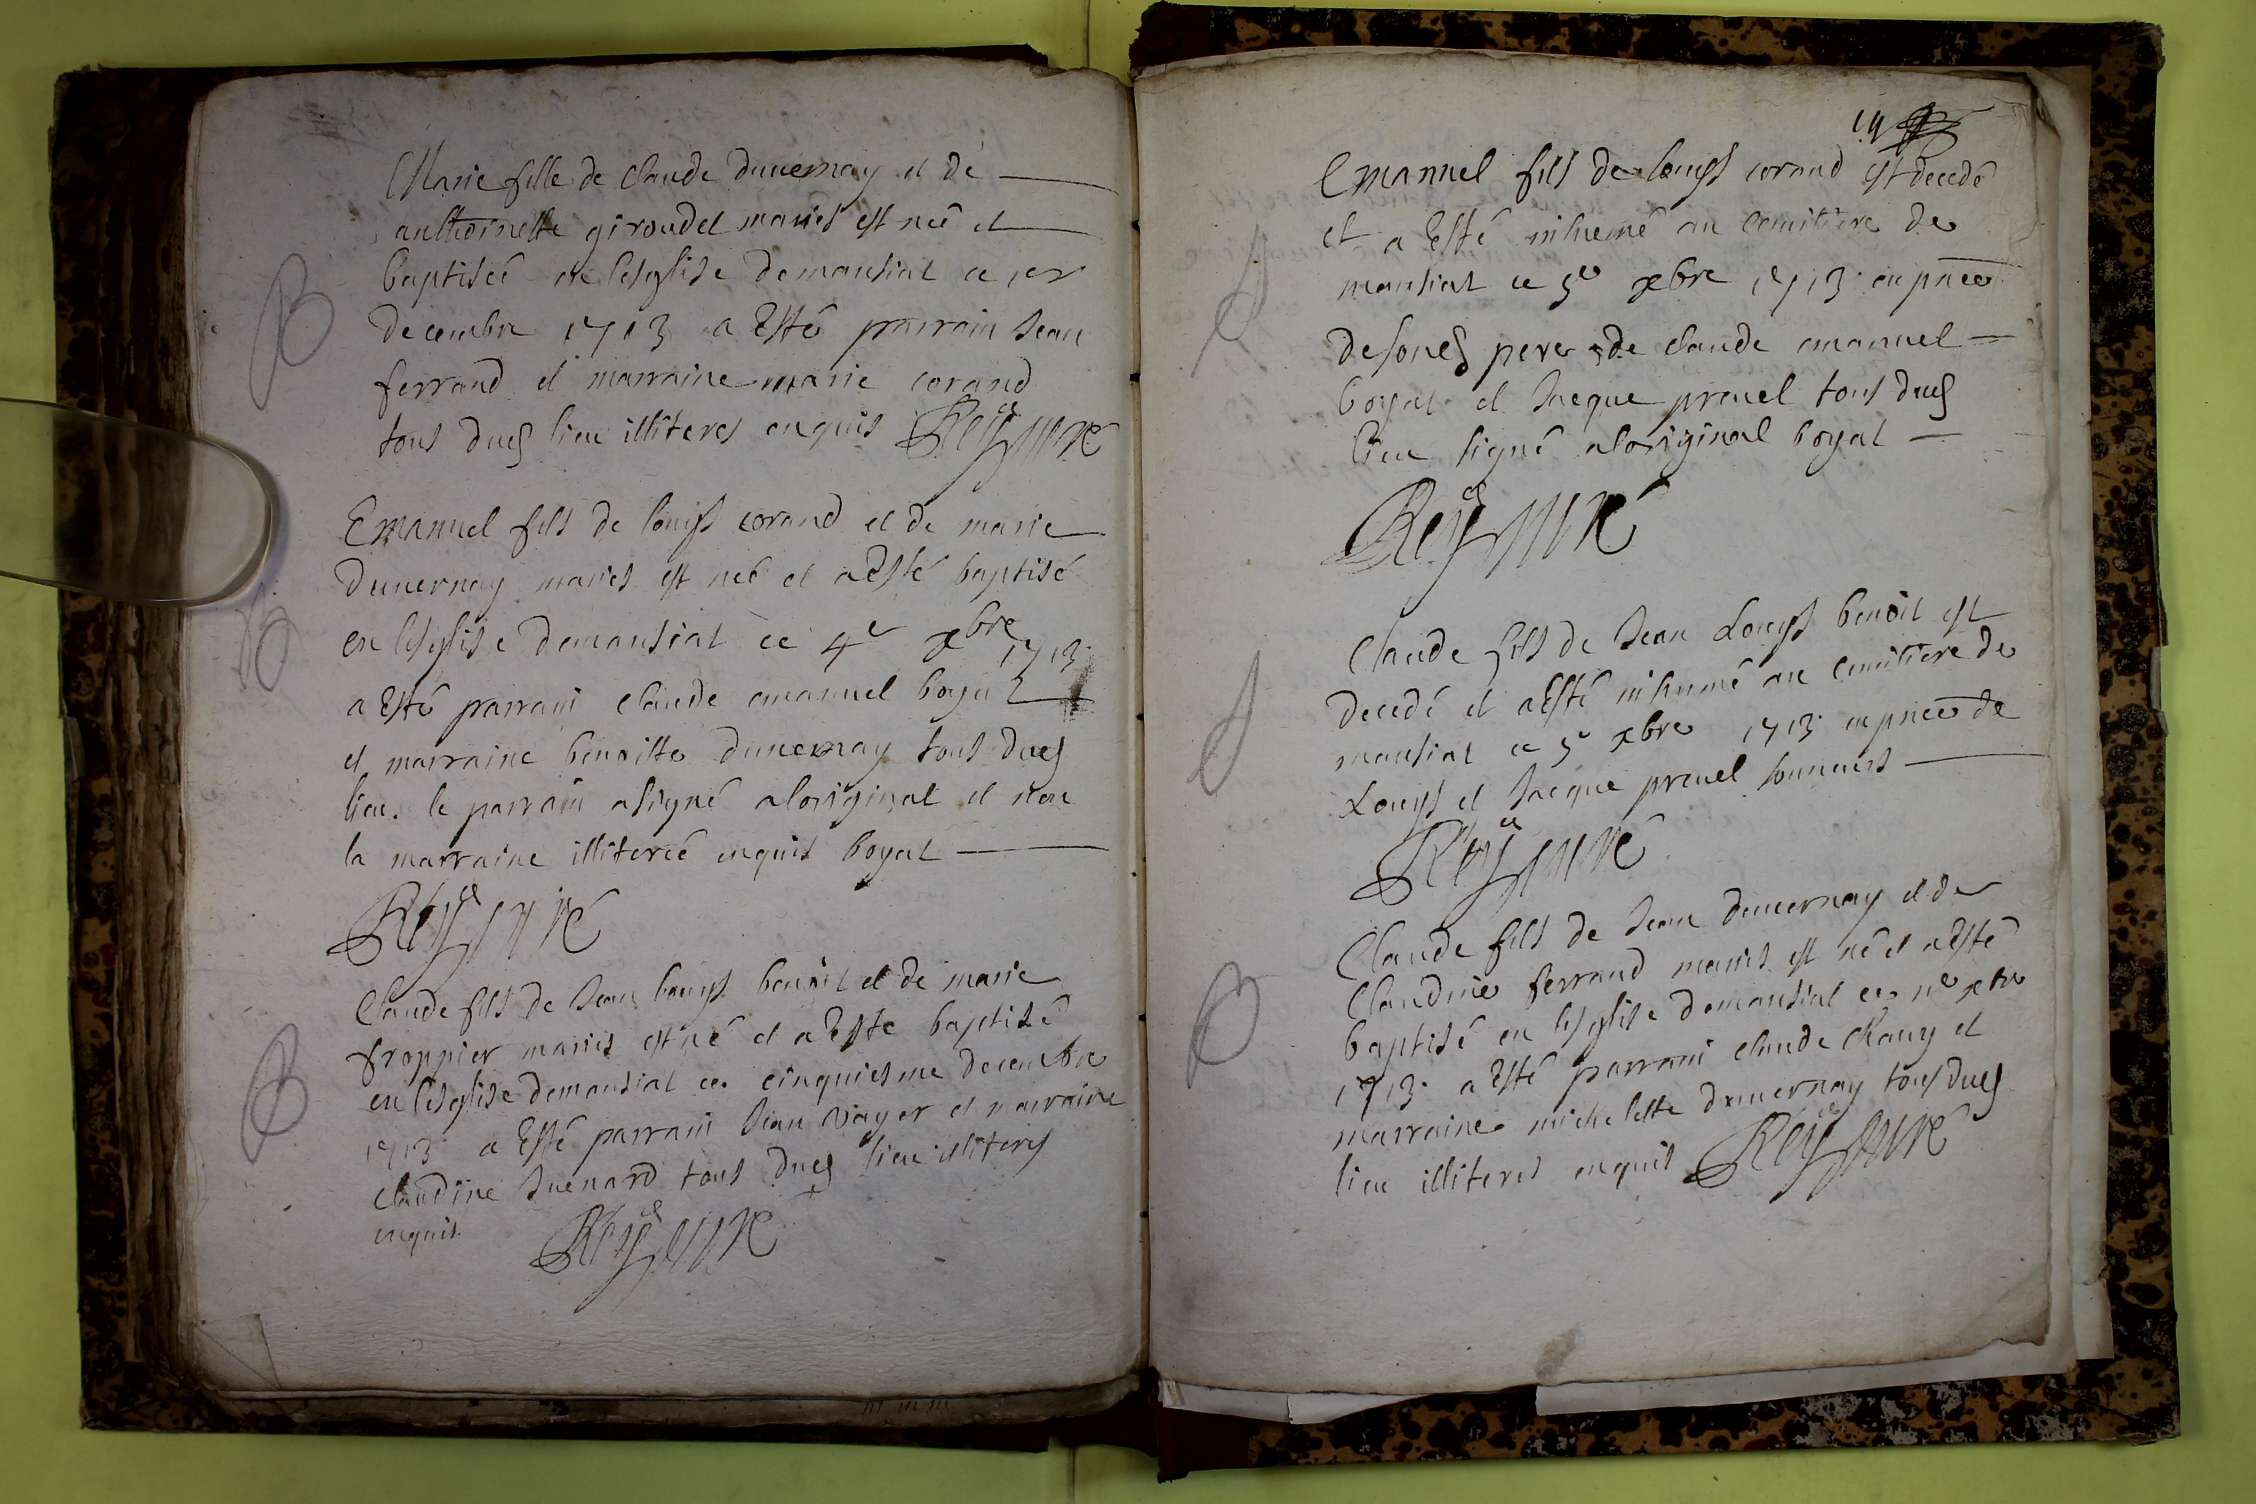 B
Marie fille de claude duuernay et de
anthoinette giroudet mariés est neé et
baptiseé en lesglise demantiat ce 1er
decembre 1713 a Esté parrain Jean
ferrand et marraine marie corand
tous dud lieu illiteres enquis Rey curé
B
Emanuel fils de louys corand et de marie
duuernay mariés est né et a Esté baptisé
en lesglise demantiat ce 4e xbre 1713
a Esté parrain claude emanuel boyat
et marraine benoitte duuernay tous dud
lieu. le parrain a signé aloriginal et non
la marraine illitereé enquis boyat
Rey curé
B
Claude fils de Jean louys benoit et de marie
froppier mariés est né et a Esté baptisé
en lesglise demantiat ce cinquiesme decembre
1713 a Esté parrain Jean vayer et marraine
claudine Guenard tous dud lieu illiteres
enquis Rey curé
Emanuel fils de louys corand est decedé
et a Esté inhumé au cemitiere de
mantiat ce 5e xbre 1713 en pnce
desond pere de claude emanuel
boyat et Jacque preuel tous dud
lieu signé aloriginal boyat
Rey curé
Claude fils de Jean Louys benoit est
decedé et a Esté inhumé au cemitiere de
mantiat ce 5e xbre 1713 en pnce de
Louys et Jacque preuel sonneurs
Rey curé
B
Claude fils de Jean duuernay et de
Claudine ferrand mariés est né et a Esté
baptisé en lesglise demantiat ce xbre
1713 a Esté parrain claude et
marraine michelette duuernay tous dud
lieu illiteres enquis Rey curé